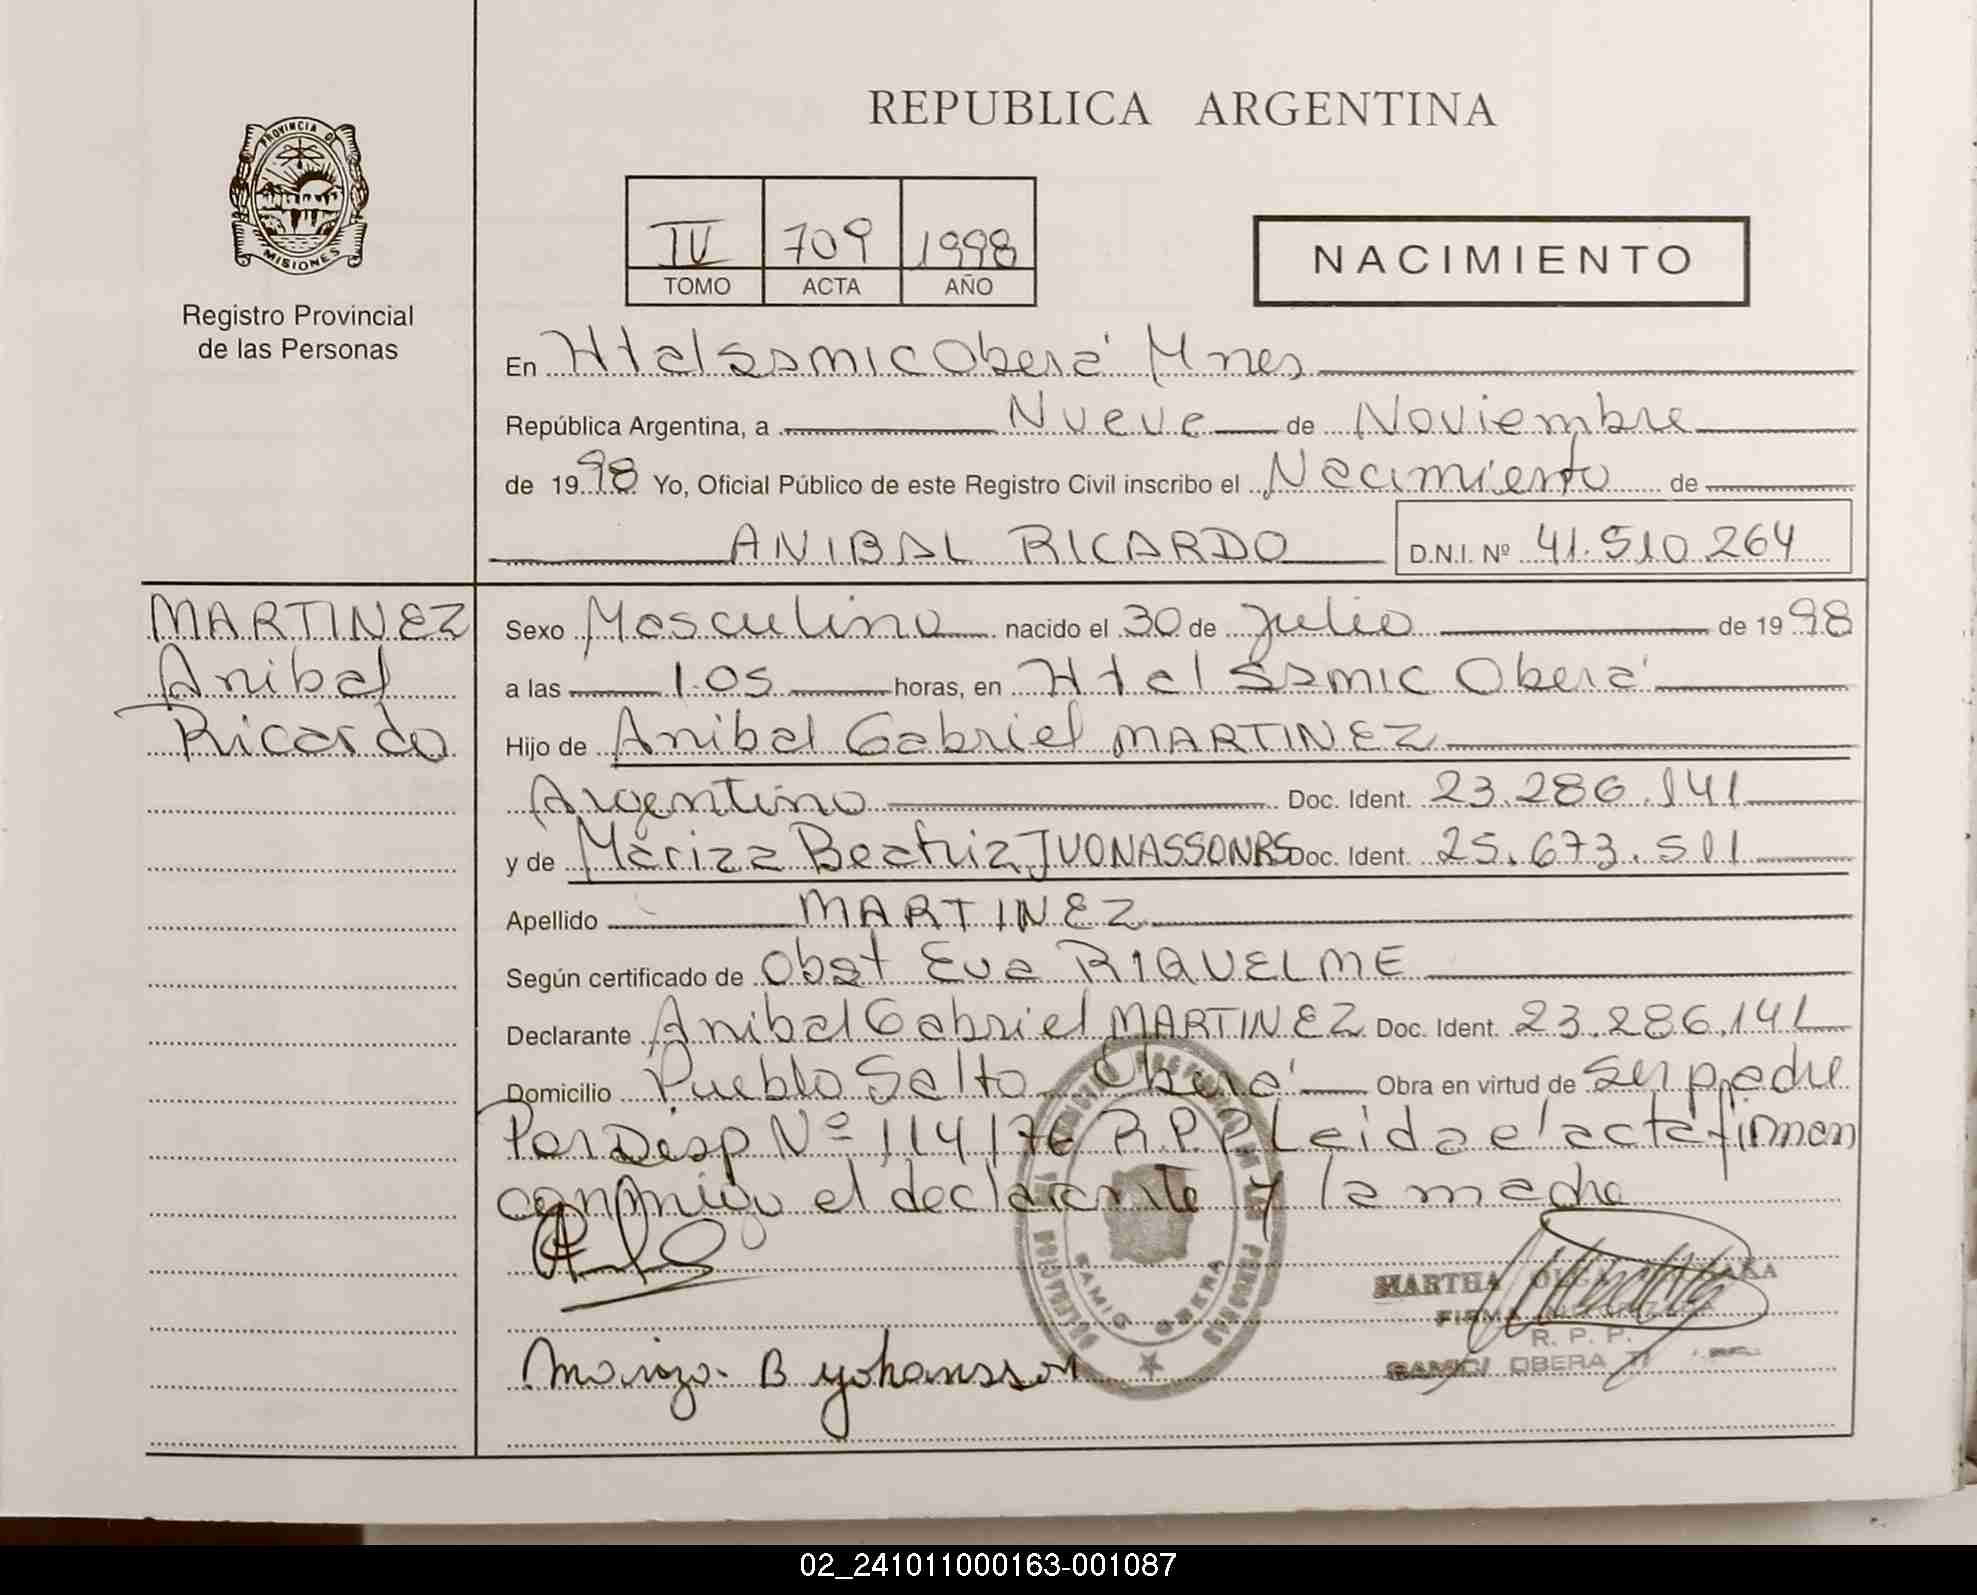 REPUBLICA ARGENTINA
PROVINCIA DE
MISIONES
Registro Provincial
de las Personas
IV 709 1998
TOMO ACTA AÑO
NACIMIENTO
En Htal Samic Oberá Mnes
República Argentina, a Nueve de Noviembre
de 1998 Yo, Oficial Público de este Registro Civil inscribo el Nacimiento de
ANIBAL RICARDO D.N.I. Nº 41.510.264
MARTINEZ
Anibal
Ricardo
Sexo Masculino nacido el 30 de Julio de 1998
a las 1.05 horas, en Htal Samic Oberá
Hijo de Anibal Gabriel MARTINEZ
Argentino Doc. Ident. 23.286.141
y de Mariza Beatriz Doc. Ident. 25.673.511
Apellido MARTINEZ
Según certificado de Obst Eva RIQUELME
Declarante Anibal Gabriel MARTINEZ Doc. Ident. 23.286.141
Domicilio Pueblo Salto Oberá Obra en virtud de ser padre
Por Disp Nº 114/76 R.P.P Leida el acta firman
conmigo el declarante y la madre
SAMIC OBERA
MARTHA OLGA
FIRMA AUTORIZADA
R. P. P.
SAMIC OBERA
Mariza B yohansson
02_241011000163-001087